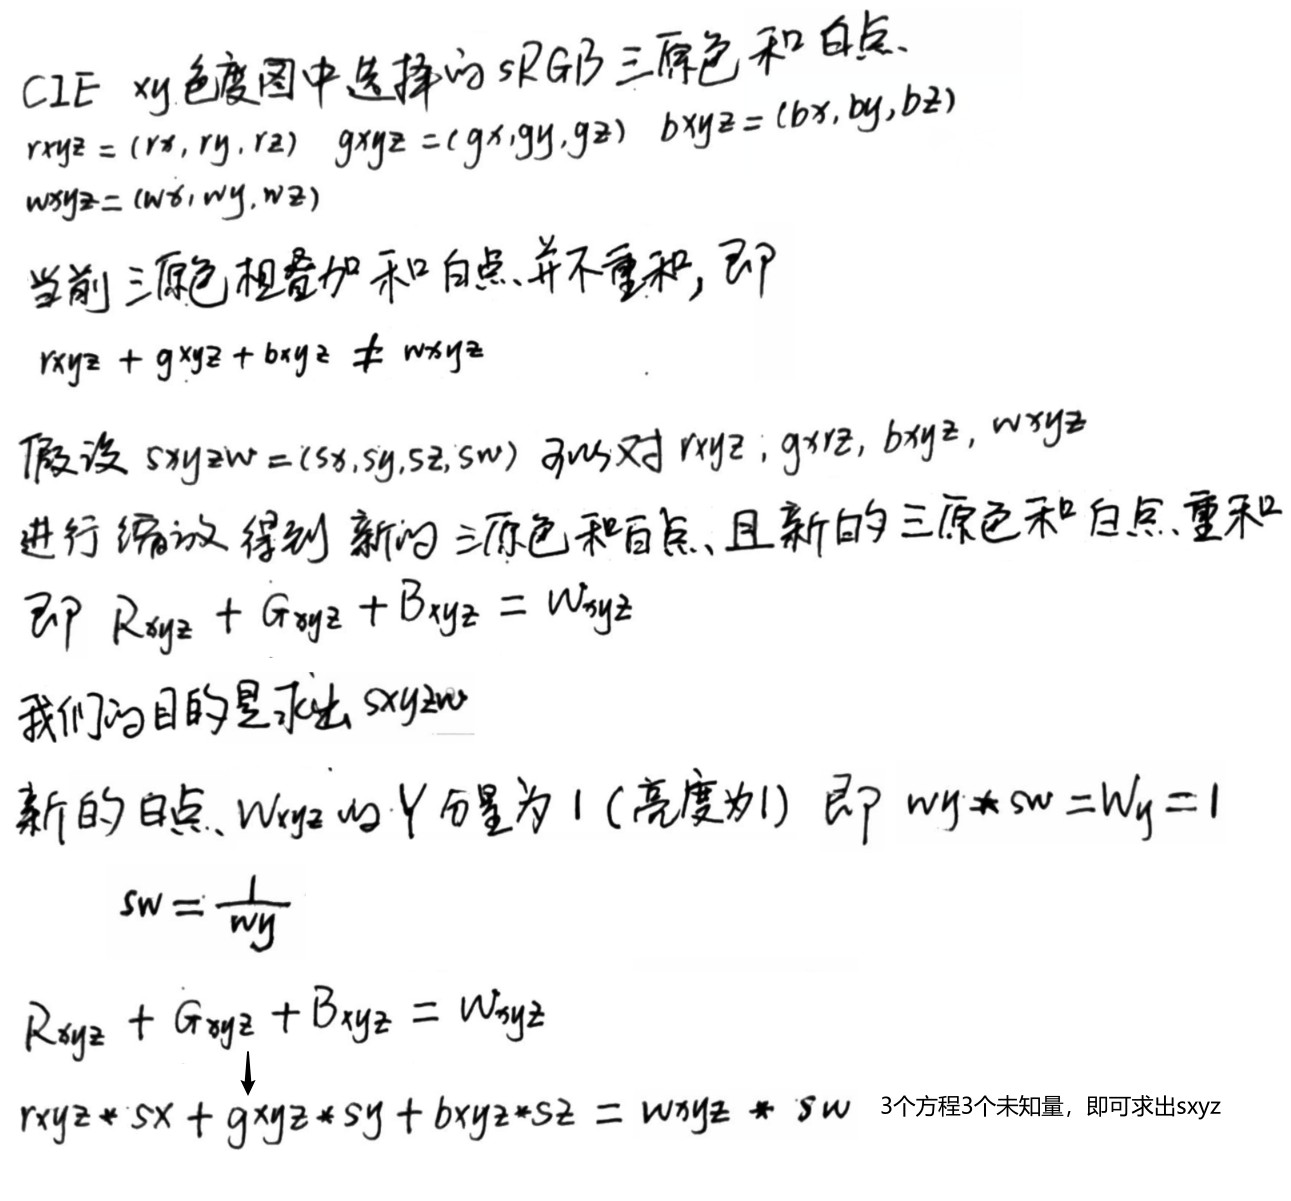 CIE xy色度图中选择的sRGB三原色和白点、
rxyz = (rx, ry, rz) gxyz = (gx, gy, gz) bxyz = (bx, by, bz)
wxyz = (wx, wy, wz)
当前三原色相叠加和白点、并不重和, 即
rxyz + gxyz + bxyz ≠ wxyz
假设 sxyzw = (sx, sy, sz, sw) 可以对 rxyz, gxyz, bxyz, wxyz
进行缩放得到新的三原色和白点、且新的三原色和白点、重和
即 Rxyz + Gxyz + Bxyz = Wxyz
我们的目的是求出 sxyzw
新的白点、Wxyz 的 Y 分量为 1 (亮度为1) 即 wy * sw = Wy = 1
sw = 1/wy
Rxyz + Gxyz + Bxyz = Wxyz
↓
rxyz * sx + gxyz * sy + bxyz * sz = wxyz * sw 3个方程3个未知量，即可求出sxyz